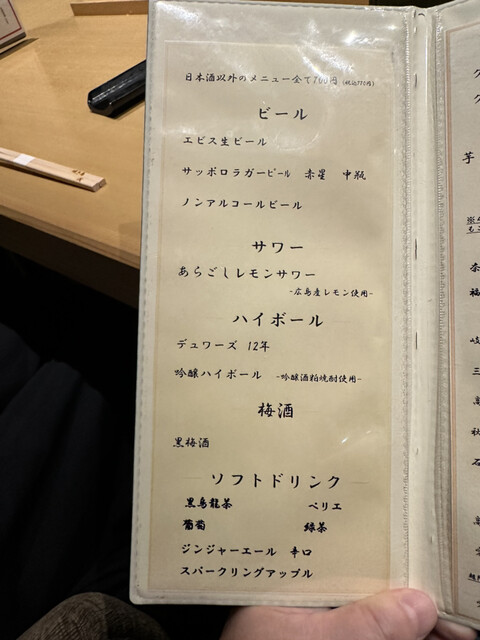 日本酒以外のメニュー全て700円 (税込770円)
ビール
エビス生ビール
サッポロラガービール 赤星 中瓶
ノンアルコールビール
サワー
あらごしレモンサワー
-広島産レモン使用-
ハイボール
デュワーズ 12年
吟醸ハイボール -吟醸酒粕焼酎使用-
梅酒
黒梅酒
ソフトドリンク
黒烏龍茶 ペリエ
葡萄 緑茶
ジンジャーエール 辛口
スパークリングアップル
芋